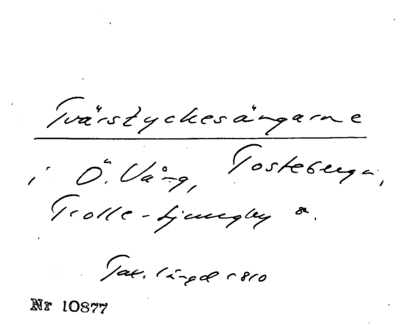 Tvärstyckesängarne
i Ö. Vång, Tosteberga,
Trolle-Ljungby a.
Tax. längd 1810
Nr 10877